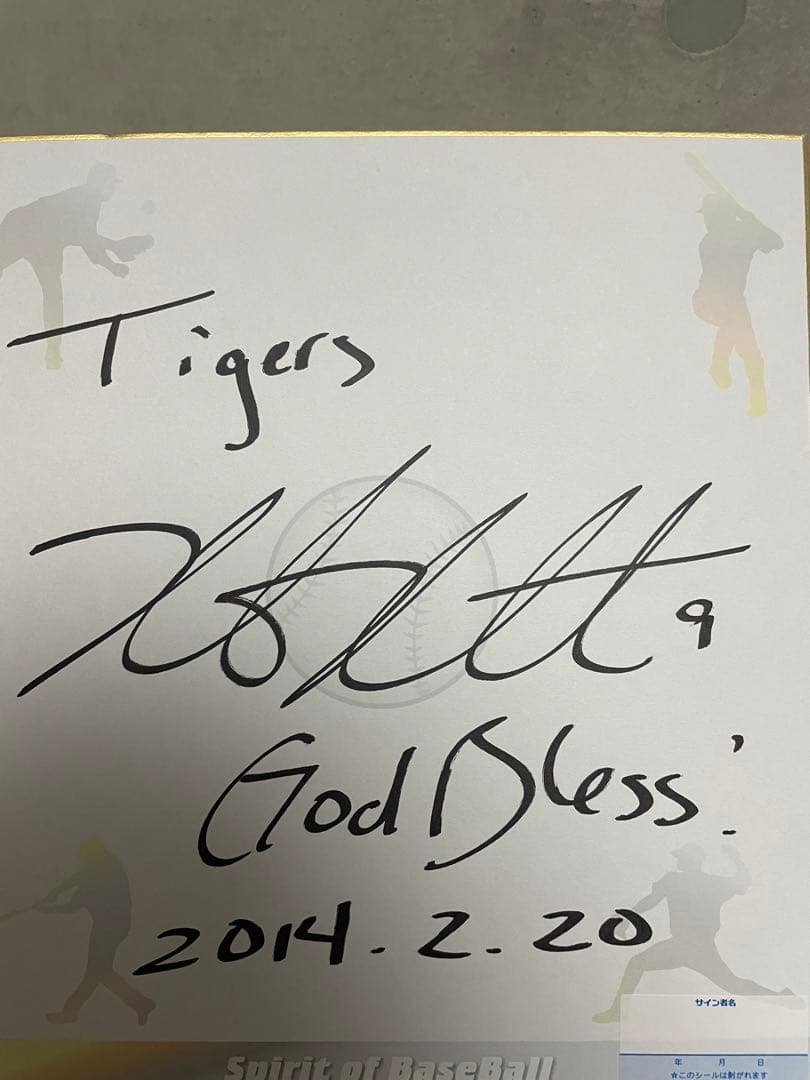 Tigers
9
God Bless!
2014.2.20
Spirit of BaseBall
サイン者名
年 月 日
☆このシールは剥がれます